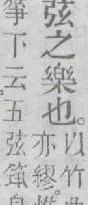 弦之樂也。以竹曲
亦繆。惟
箏下云。五弦筑身